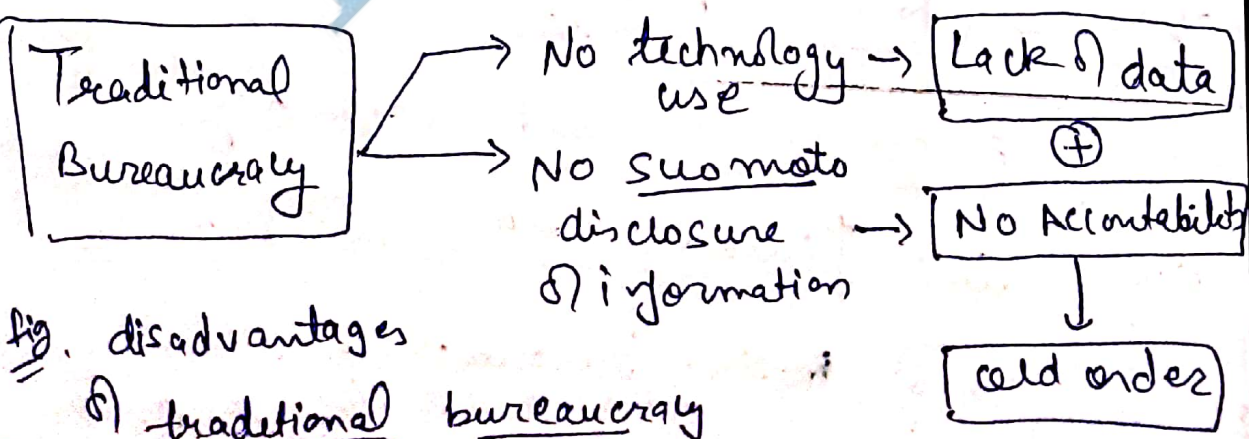 Traditional
Bureaucracy
No technology
use
Lack of data
+
No suo moto
disclosure
of information
No Accountability
old order
fig. disadvantages
of traditional bureaucracy